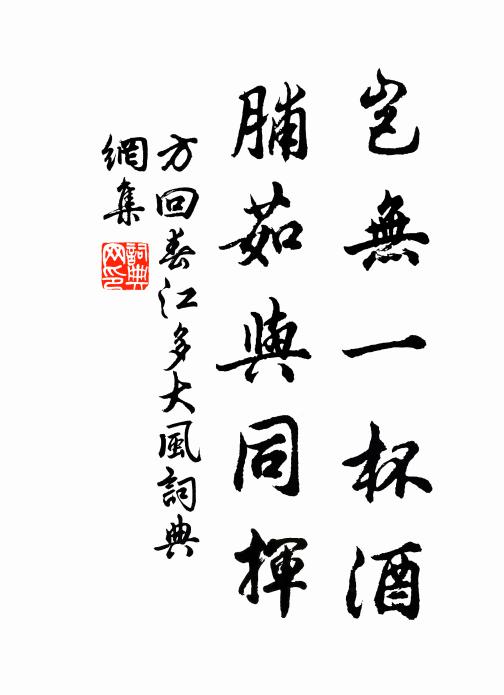 豈無一杯酒
脯茹與同揮
方回春江多大風詞典
網集
詞典網印